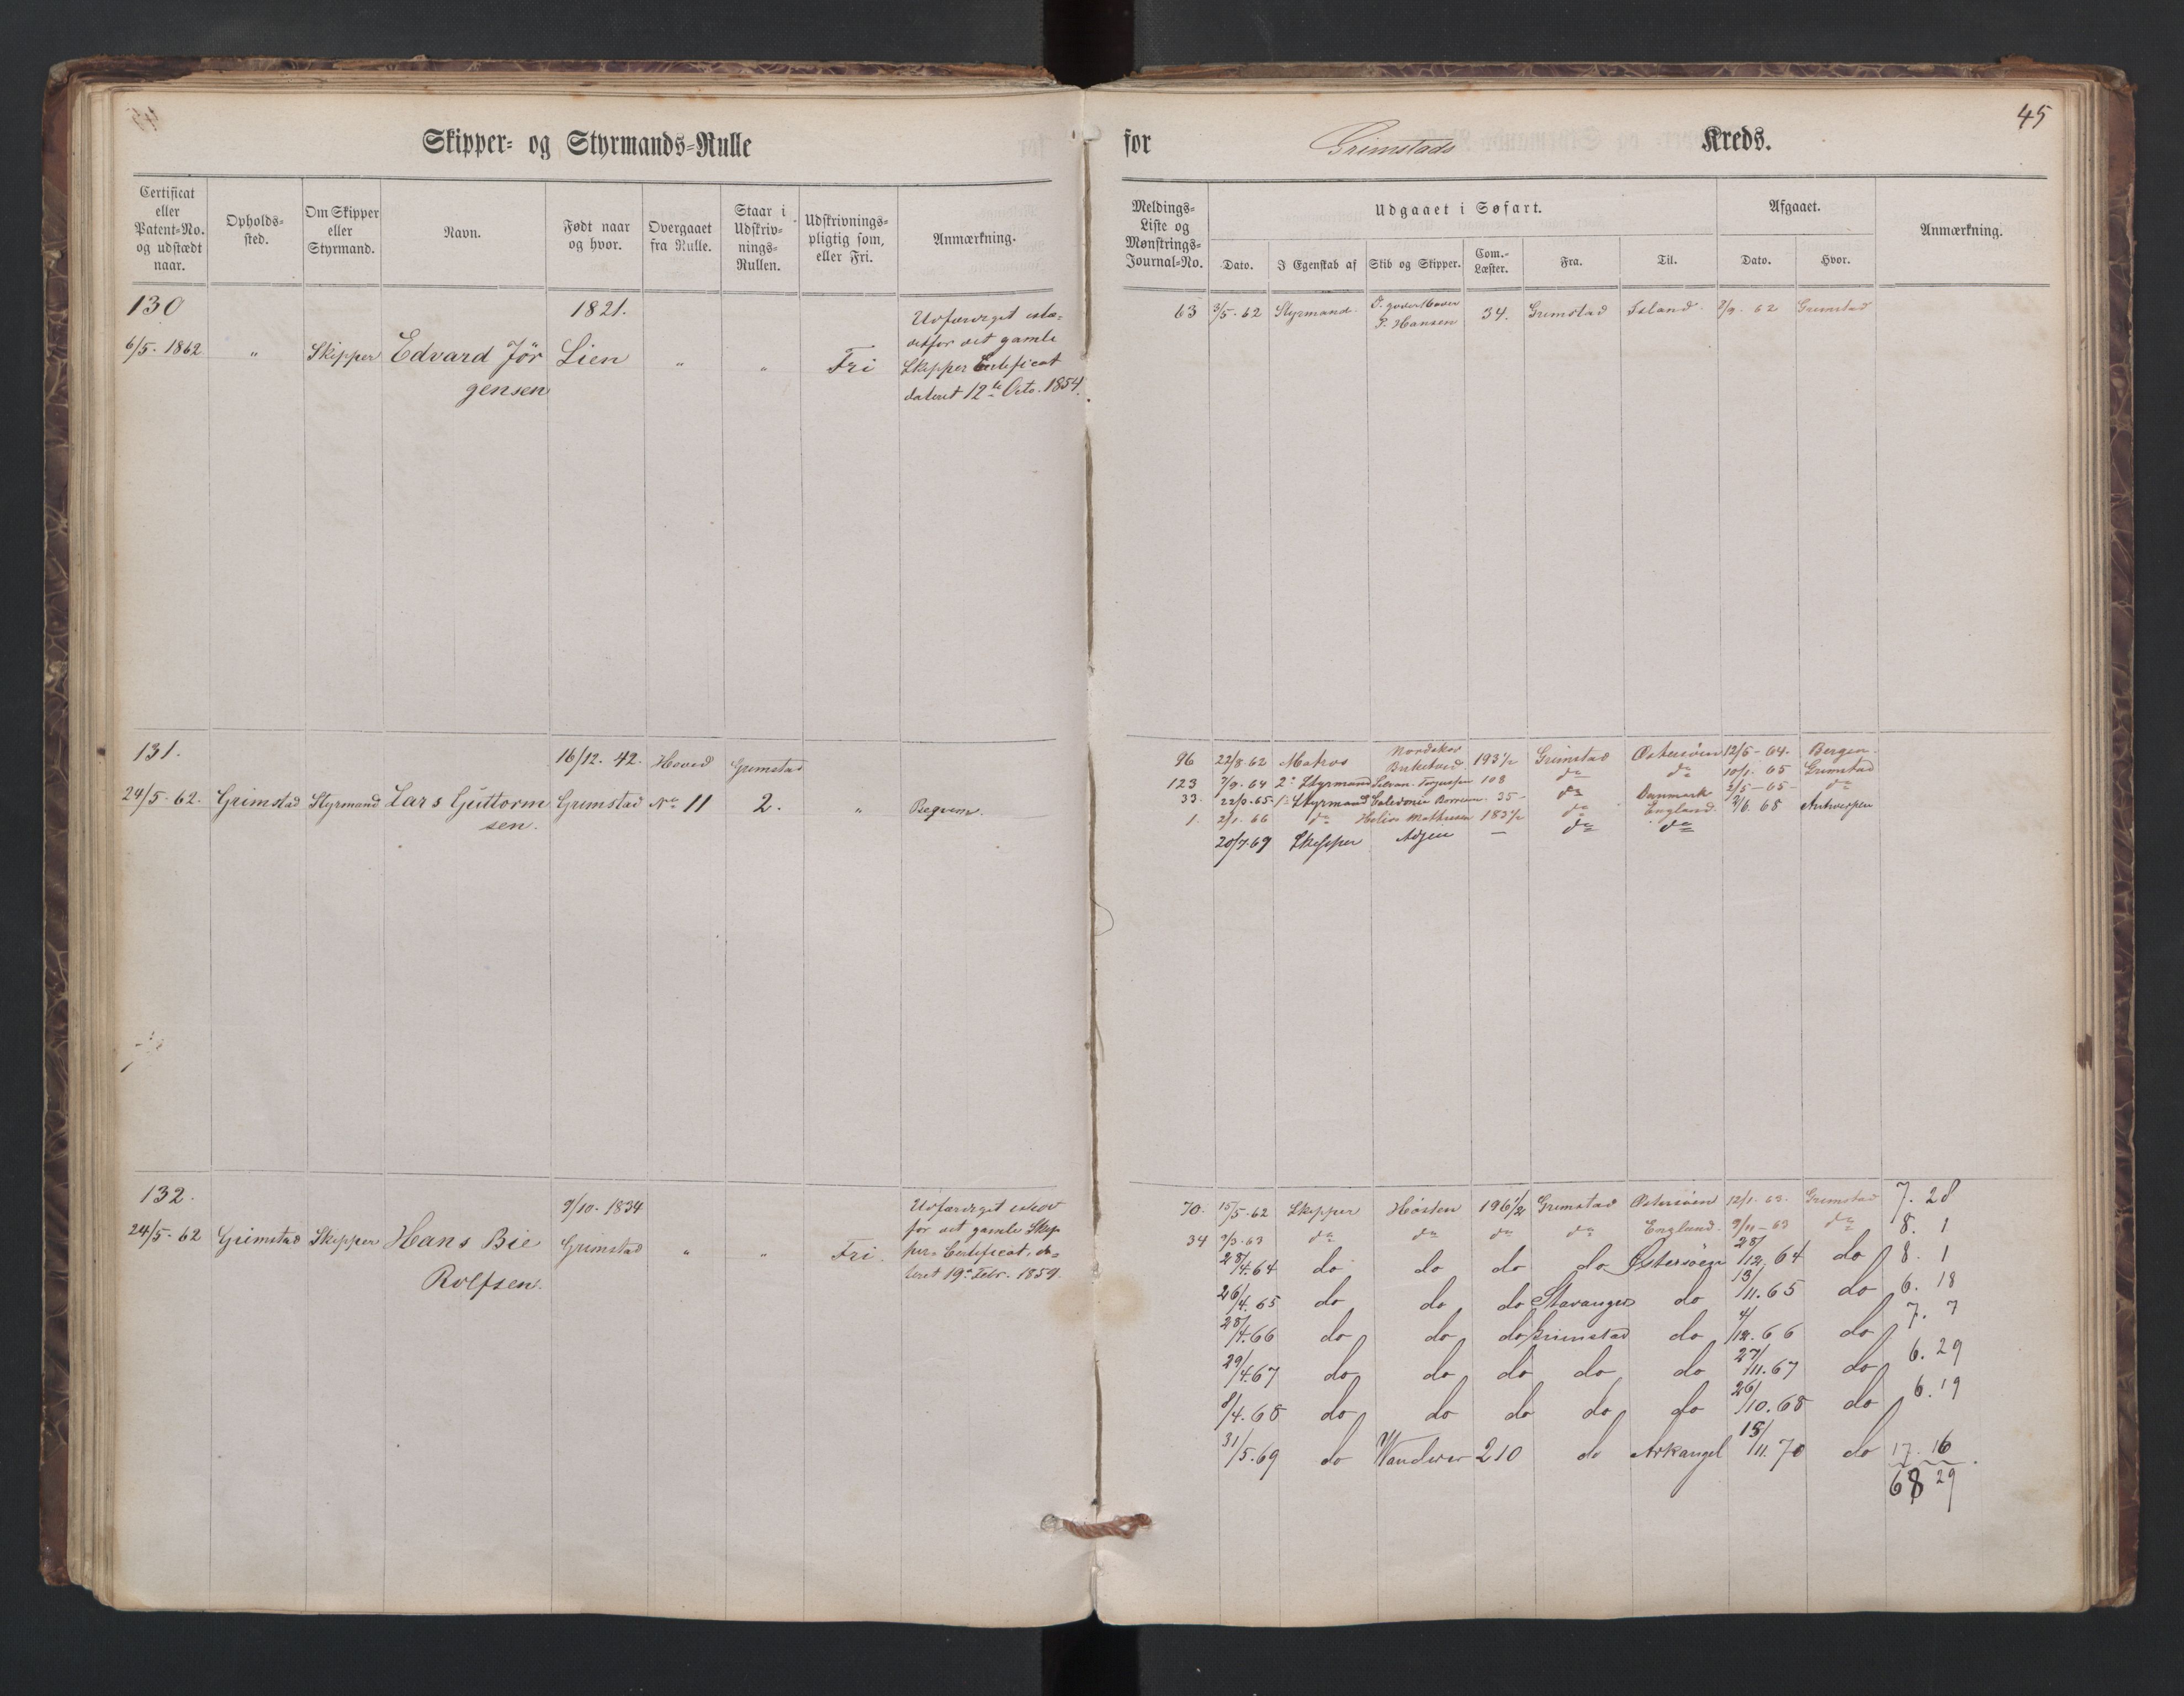 45
Skipper- og Styrmands-Rulle for Grimstads Kreds.
Certificat eller Patent-No. og udstædt naar.
Opholds-sted.
Om Skipper eller Styrmand.
Navn.
Født naar og hvor.
Overgaaet fra Rulle.
Staar i Udskriv-nings-Rullen.
Udskrivnings-pligtig som, eller Fri.
Anmærkning.
Meldings-Liste og Mønstrings-Journal-No.
Udgaaet i Søfart.
Dato. I Egenskab af Skib og Skipper. Com.-Læster. Fra. Til.
Afgaaet.
Dato. Hvor.
Anmærkning.
130
6/5. 1862 " Skipper Edvard Jör
gensen
1821.
Lien " " Fri
Udfærdiget istæ-
detfor det gamle
Skipper Certificat
dateret 12te Octo. 1854.
63 3/5. 62 Styrmand P. Hansen 34. Grimstad Island 2/9. 62 Grimstad
131.
24/5. 62. Grimstad Styrmand Lars Guttorm
sen.
16/12. 42.
Grimstad
Hoved
No 11
Grimstad
2. " Beqvem.
96 22/8 62 Matros Nordskov Birketved 193½ Grimstad Østersöen 12/5 - 64. Bergen
123 7/9. 64 2. Styrmand 108 do do 10/1. 65 Grimstad
33. 22/3. 65 1. Styrmand Caledonia 35 - do Danmark 2/5 - 65 - do
1. 2/1. 66 do Helios Mathiesen 183½ do England. 2/6. 68 Antwerpen
20/7. 69 Skipper — do do
132.
24/5. 62 Grimstad Skipper Hans Bie
Rolfsen.
9/10. 1834
Grimstad " " Fri.
Udfærdiget istedet
for det gamle Skip
per-Certificat, da-
teret 19. Febr. 1859.
70. 15/5. 62 Skipper Hösten 196½ Grimstad Østersöen 12/1. 63. Grimstad 7. 28
34 2/3. 63 do do do do England. 3/11 - 63 do 8. 1
28/4. 64 do do do do Østersöen 28/12. 64 do 8. 1
26/4. 65 do do do Stavanger do 13/11. 65 do 6. 18
28/4. 66 do do do Grimstad do 4/12. 66 do 7. 7
29/4. 67 do do do do do 27/11. 67 do 6. 29
8/4. 68 do do do do do 26/10. 68 do 6. 19
31/5. 69 do Wanderer 210 do Arkangel 15/11. 70 do 17. 16
68 29